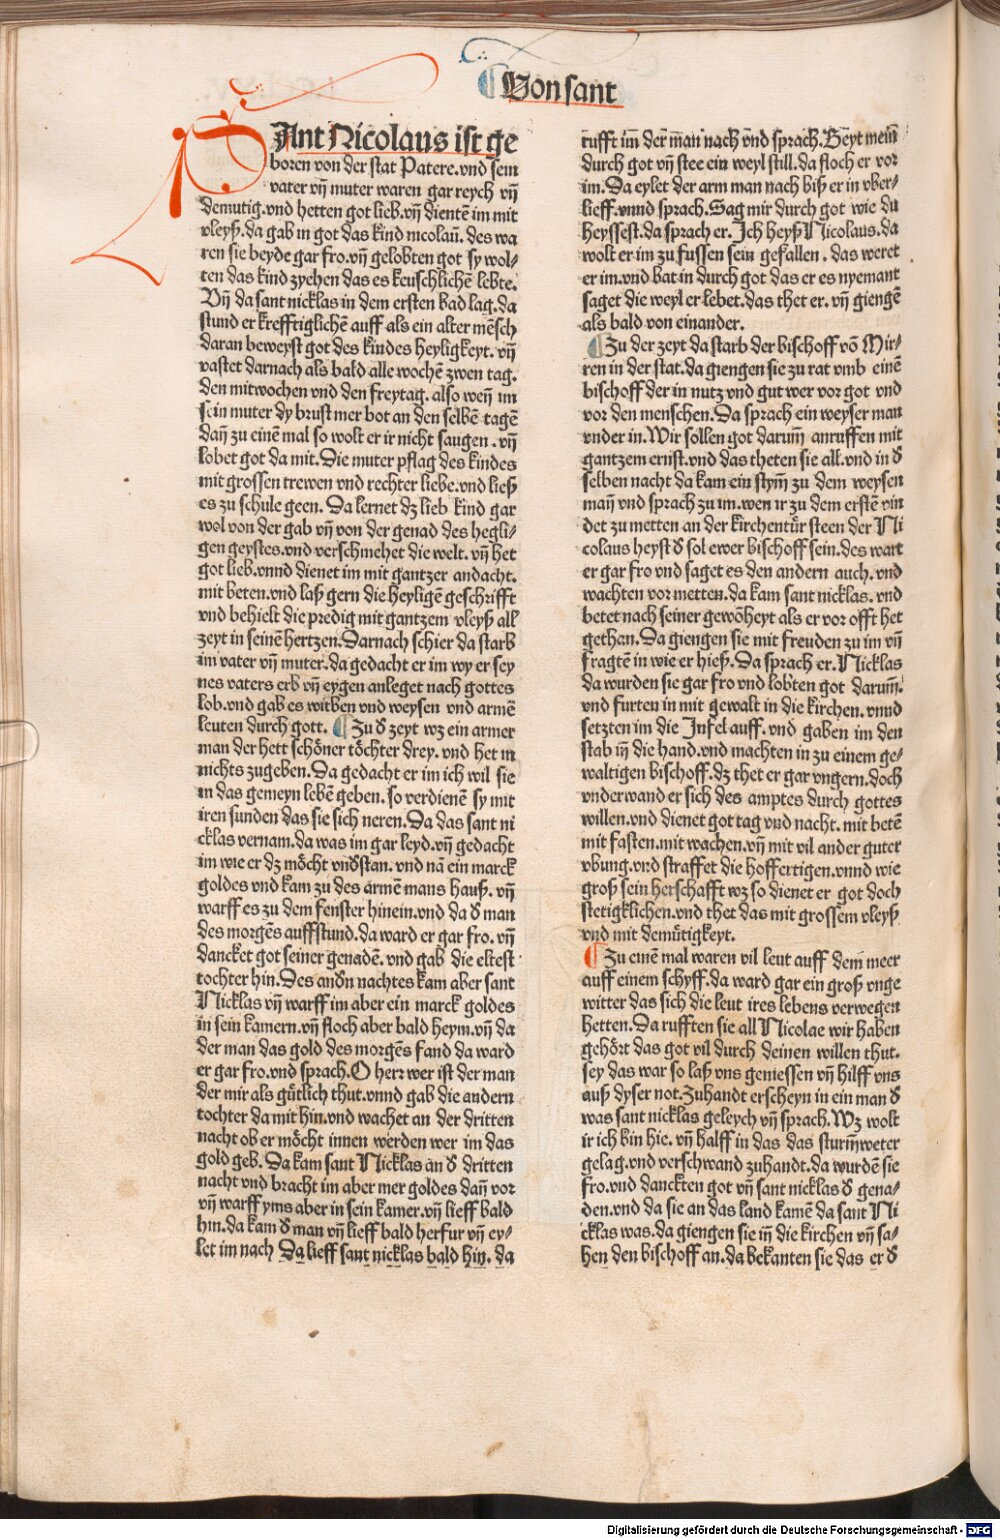 Von sant
SAnt Nicolaus ist ge
boren von der stat Patere. vnd sein
vater vñ muter waren gar reych vñ
demutig. vnd hetten got lieb. vñ dientẽ im mit
vleyß. da gab in got das kind nicolaũ. des wa
ren sie beyde gar fro. vñ gelobten got sy wol-
ten das kind zyehen das es keuschlichẽ lebte.
Vñ da sant nicklas in dem ersten bad lag. da
stund er krefftiglichẽ auff als ein alter mẽsch
daran beweyst got des kindes heyligkeyt. vñ
vastet darnach als bald alle wochẽ zwen tag.
den mitwochen vnd den freytag. also weñ im
sein muter dy brust mer bot an den selbẽ tagẽ
dañ zu einẽ mal so wolt er ir nicht saugen. vñ
lobet got da mit. Die muter pflag des kindes
mit grossen trewen vnd rechter liebe. vnd ließ
es zu schule geen. Da lernet dz lieb kind gar
wol von der gab vñ von der genad des heyli-
gen geystes. vnd verschmehet die welt. vñ het
got lieb. vnnd dienet im mit gantzer andacht.
mit beten. vnd laß gern die heyligẽ geschrifft
vnd behielt die predig mit gantzem vleyß all
zeyt in seinẽ hertzen. Darnach schier da starb
im vater vñ muter. da gedacht er im wy er sey
nes vaters erb vñ eygen anleget nach gottes
lob. vnd gab es witben vnd weysen vnd armẽ
leuten durch gott. ¶ Zu ď zeyt wz ein armer
man der hett schöner töchter drey. vnd het in
nichts zugeben. Da gedacht er im ich wil sie
in das gemeyn lebẽ geben. so verdienẽ sy mit
iren sunden das sie sich neren. Da das sant ni
cklas vernam. da was im gar leyd. vñ gedacht
im wie er dz möcht vnďstan. vnd nã ein marck
goldes vnd kam zu des armẽ mans hauß. vñ
warff es zu dem fenster hinein. vnd da ď man
des morgẽs auffstund. da ward er gar fro. vñ
dancket got seiner genadẽ. vnd gab die eltest
tochter hin. Des anďn nachtes kam aber sant
Nicklas vñ warff im aber ein marck goldes
in sein kamern. vñ floch aber bald heym. vñ da
der man das gold des morgẽs fand da ward
er gar fro. vnd sprach. O herr wer ist der man
der mir als gütlich thut. vnnd gab die andern
tochter da mit hin. vnd wachet an der dritten
nacht ob er möcht innen werden wer im das
gold geb. Da kam sant Nicklas an ď dritten
nacht vnd bracht im aber mer goldes dañ vor
vñ warff yms aber in sein kamer. vñ lieff bald
hin. da kam ď man vñ lieff bald herfur vñ ey-
let im nach Da lieff sant nicklas bald hin. da
rufft im der man nach vnd sprach. Beyt mein
durch got vñ stee ein weyl still. da floch er vor
im. Da eylet der arm man nach biß er in vber-
lieff. vnnd sprach. Sag mir durch got wie du
heyssest. da sprach er. Ich heyß Nicolaus. da
wolt er im zu fussen sein gefallen. das weret
er im. vnd bat in durch got das er es nyemant
saget die weyl er lebet. das thet er. vñ giengẽ
als bald von einander.
¶ Zu der zeyt da starb der bischoff võ Mir-
ren in der stat. da giengen sie zu rat vmb einẽ
bischoff der in nutz vnd gut wer vor got vnd
vor den menschen. Da sprach ein weyser man
vnder in. Wir söllen got darum̃ anruffen mit
gantzem ernst. vnd das theten sie all. vnd in ď
selben nacht da kam ein stym̃ zu dem weysen
mañ vnd sprach zu im. wen ir zu dem erstẽ vin
det zu metten an der kirchentür steen der Ni
colaus heyst ď sol ewer bischoff sein. des wart
er gar fro vnd saget es den andern auch. vnd
wachten vor metten. da kam sant nicklas. vnd
betet nach seiner gewõheyt als er vor offt het
gethan. Da giengen sie mit freuden zu im vñ
fragtẽ in wie er hieß. Da sprach er. Nicklas
da wurden sie gar fro vnd lobten got darum̃.
vnd furten in mit gewalt in die kirchen. vnnd
setzten im die Infel auff. vnd gaben im den
stab iñ die hand. vnd machten in zu einem ge-
waltigen bischoff. dz thet er gar vngern. doch
vnderwand er sich des amptes durch gottes
willen. vnd dienet got tag vnd nacht. mit betẽ
mit fasten. mit wachen. vñ mit vil ander guter
vbung. vnd straffet die hoffertigen. vnnd wie
groß sein herschafft wz so dienet er got doch
stetigklichen. vnd thet das mit grossem vleyß
vnd mit demütigkeyt.
¶ Zu einẽ mal waren vil leut auff dem meer
auff einem schyff. da ward gar ein groß vnge
witter das sich die leut ires lebens verwegen
hetten. Da rufften sie all Nicolae wir haben
gehört das got vil durch deinen willen thut.
sey das war so laß vns geniessen vñ hilff vns
auß dyser not. Zuhandt erscheyn in ein man ď
was sant nicklas geleych vñ sprach. Wz wolt
ir ich bin hie. vñ halff in das das sturm̃weter
gelag. vnd verschwand zuhandt. da wurdẽ sie
fro. vnd danckten got vñ sant nicklas ď gena-
den. vnd da sie an das land kamẽ da sant Ni
cklas was. da giengen sie iñ die kirchen vñ sa-
hen den bischoff an. da bekanten sie das er ď
Digitalisierung gefördert durch die Deutsche Forschungsgemeinschaft - DFG